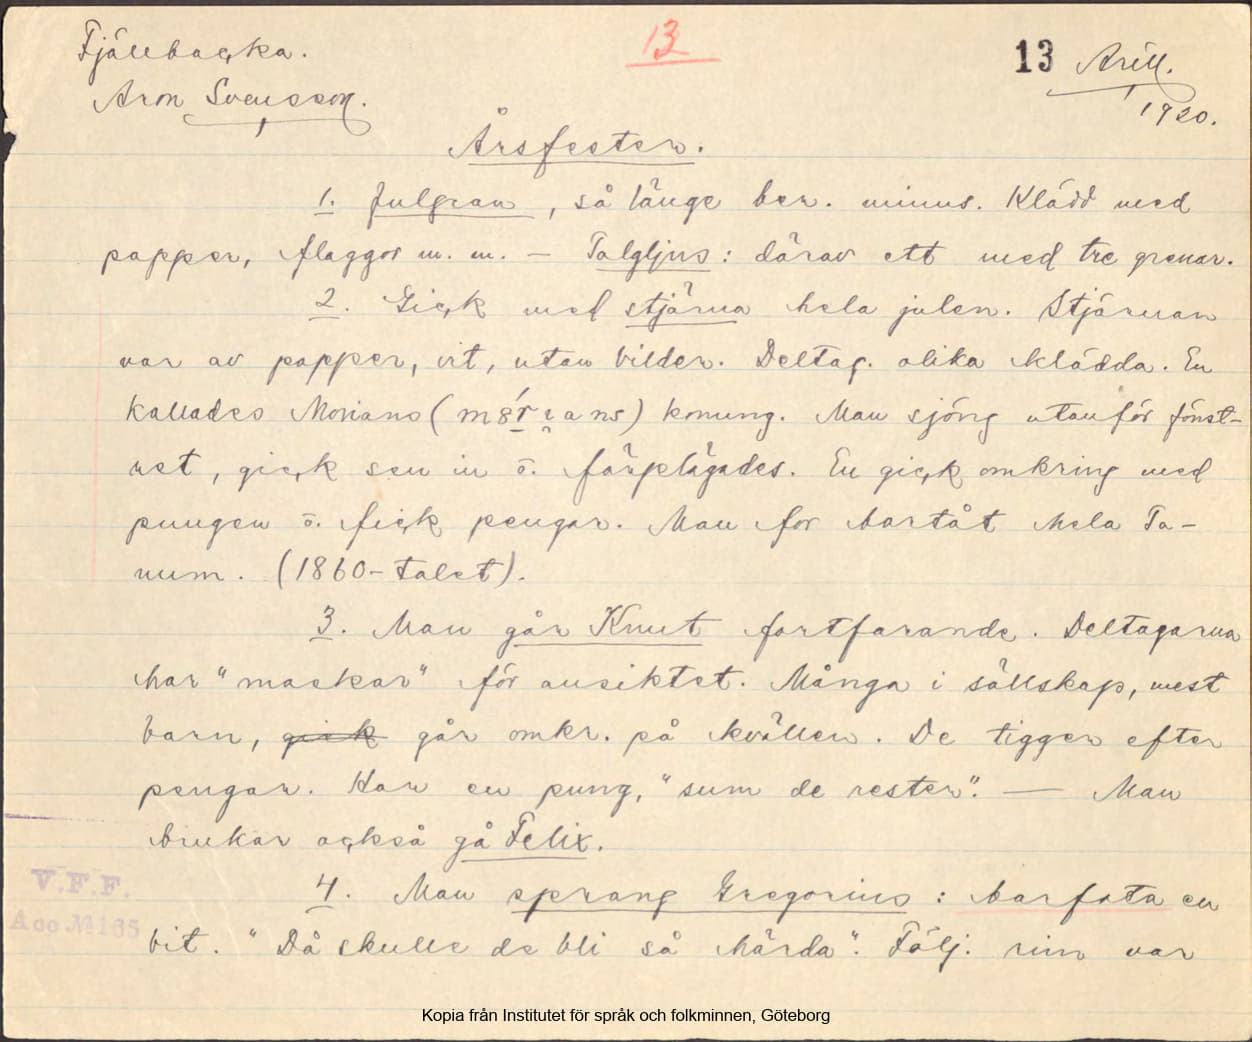 Fjällbacka.
Aron Svensson.
13
13 Arill.
1920.
Årsfester.
1. Julgran, så länge ber. minns. Klädd med
papper, flaggor m. m. — Talgljus: därav ett med tre grenar.
2. Gick med stjärna hela julen. Stjärnan
var av papper, vit, utan bilder. Deltag. olika klädda. En
kallades Morians ( ) konung. Man sjöng utanför fönst-
ret, gick sen in o. förplägades. En gick omkring med
pungen o. fick pengar. Man for bortåt hela Ta-
num. (1860-talet).
3. Man går Knut fortfarande. Deltagarna
har "maskar" för ansiktet. Många i sällskap, mest
barn, gick går omkr. på kvällen. De tigger efter
pengar. Har en pung, "sum de rester". — Man
brukar också gå Felix.
4. Man sprang Gregorius: barfota en
bit. "Då skulle de bli så hårda". Följ. rim var
V.F.F.
Acc № 165
Kopia från Institutet för språk och folkminnen, Göteborg